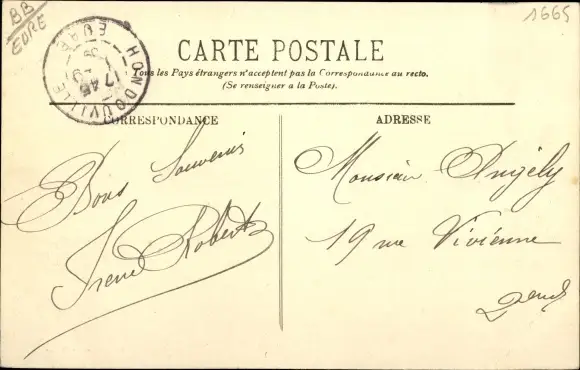 BB
EURE
1665
HONDOUVILLE
EURE
17 45
CARTE POSTALE
Tous les Pays étrangers n'acceptent pas la Correspondance au recto.
(Se renseigner a la Poste).
CORRESPONDANCE
ADRESSE
Bons Souvenirs
Irene Robert
Monsieur Angély
19 rue Vivienne